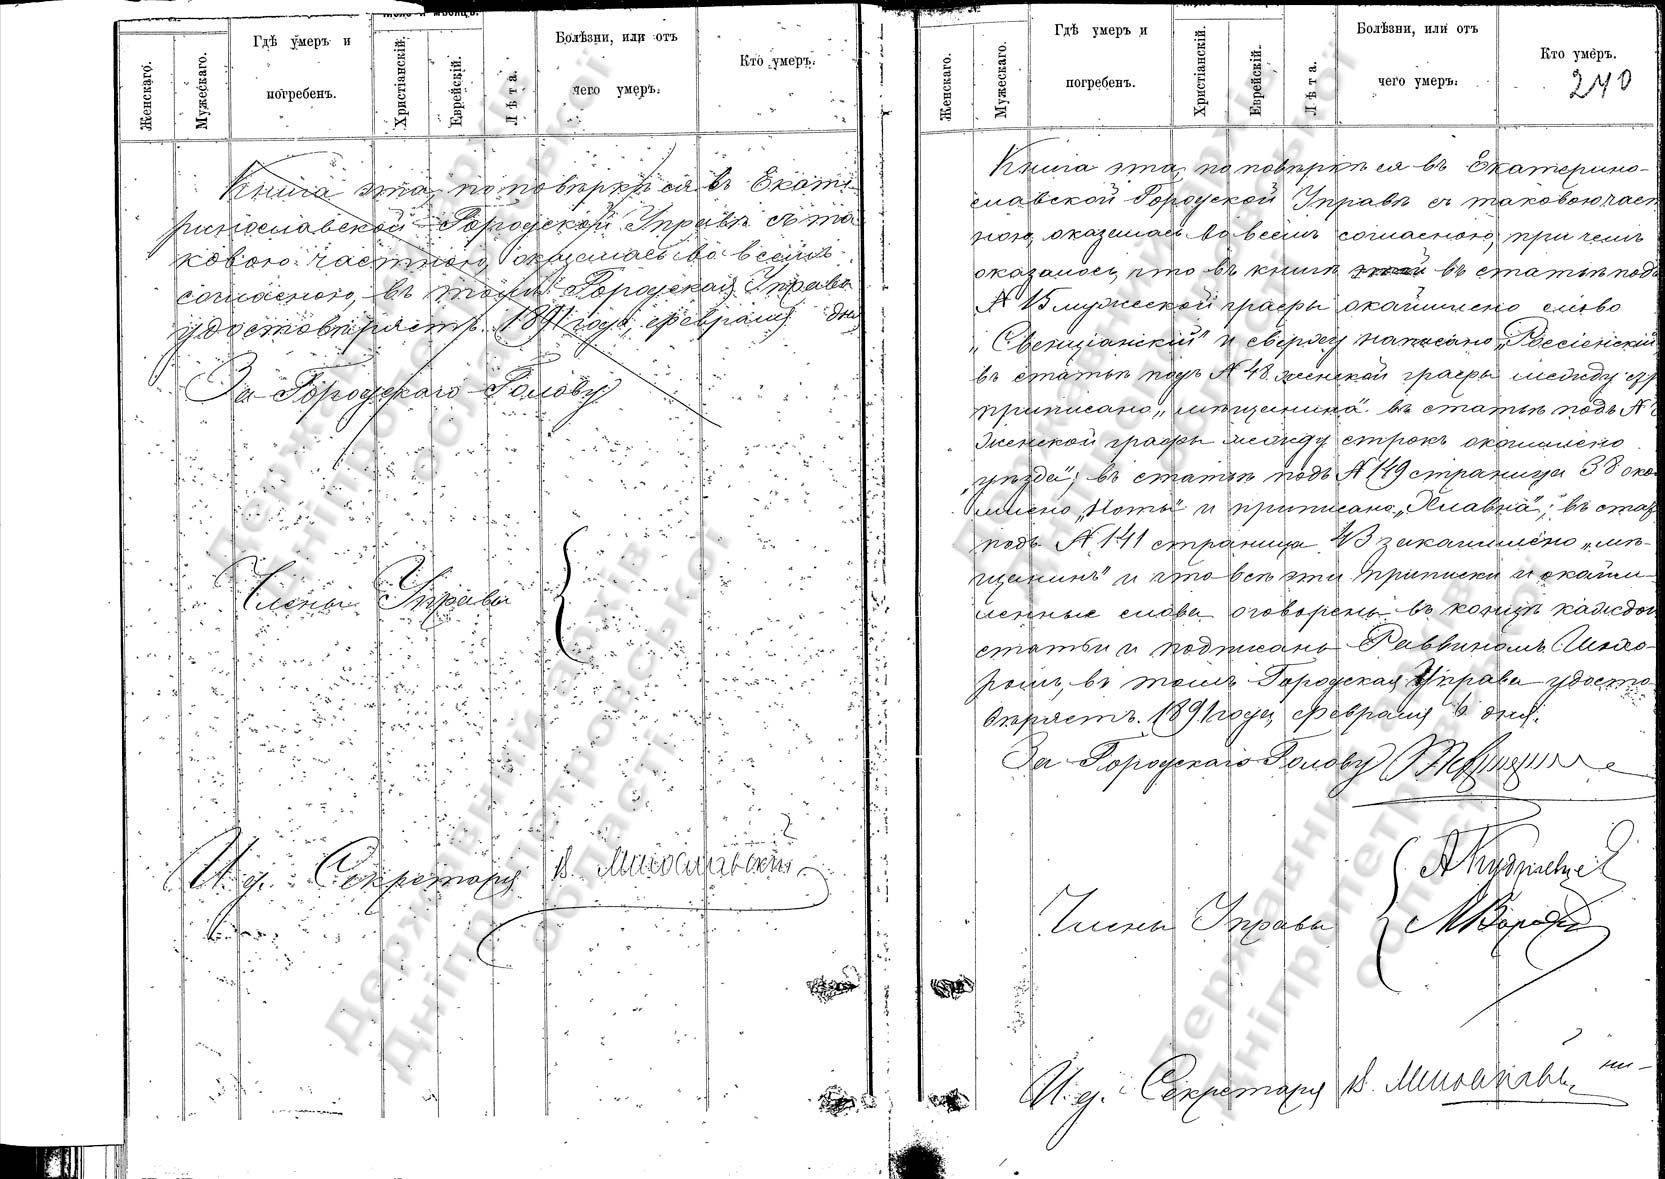 Женскаго.
Мужескаго.
Гдѣ умеръ и
погребенъ.
Христіанскій.
Еврейскій.
Лѣта.
Болѣзни, или отъ
чего умеръ.
Кто умеръ.
Книга эта, по повѣркѣ ея въ Екате-
ринославской Городской Управѣ съ та
ковою частною, оказалась во всемъ
согласною, въ томъ Городская Управа
удостовѣряетъ. 1891 года, февраля дня
За Городскаго Голову
Члены Управы
И. д. Секретаря В.
Женскаго.
Мужескаго.
Гдѣ умеръ и
погребенъ.
Христіанскій.
Еврейскій.
Лѣта.
Болѣзни, или отъ
чего умеръ.
Кто умеръ.
240
Книга эта, по повѣркѣ ея въ Екатерино-
славской Городской Управѣ съ таковою част
ною, оказалась во всемъ согласною, при чемъ
оказалось, что въ книгѣ въ статьѣ подъ
№ 15 мужеской графы окаймлено слово
„Свенціанскій" и сверху написано „Россіенскій
въ статьѣ подъ № 48 женской графы между стр
приписано „мѣщанина". въ статьѣ подъ №
женской графы между строкъ окаймлено
„уѣзда"; въ статьѣ подъ № 149 страница 38 окай
млено „Ноты" и приписано „Хлавна"; въ стат
подъ № 141 страница 43 окаймлено „мѣ-
щанинъ" и что всѣ эти приписки и окайм-
ленные слова оговорены въ концѣ каждой
статьи и подписаны Раввиномъ
ромъ, въ томъ Городская Управа удосто
вѣряетъ. 1891 года, февраля 6 дня.
За Городскаго Голову
Члены Управы
И. д. Секретаря В.